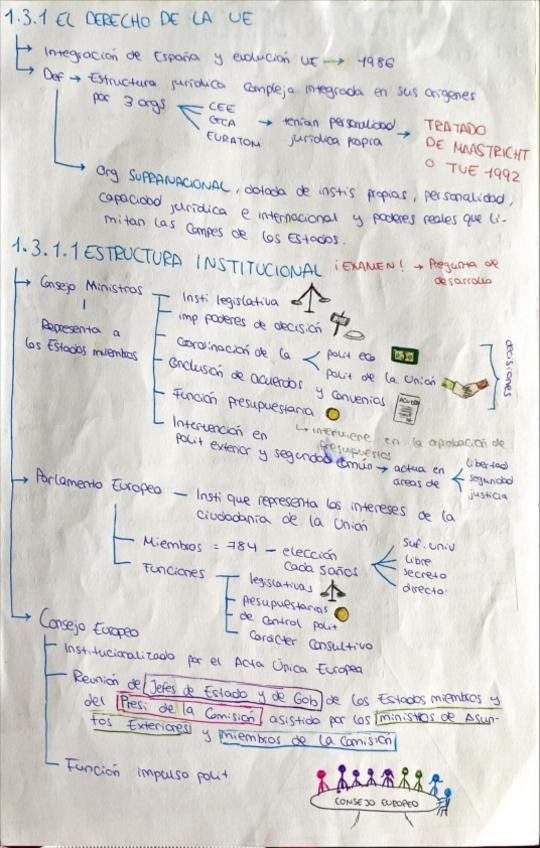 1.3.1 EL DERECHO DE LA UE
Integración de España y evolución UE → 1986
Def → Estructura jurídica compleja integrada en sus orígenes
por 3 orgs
CEE
CECA
EURATOM
→ tenían personalidad
jurídica propia →
TRATADO
DE MAASTRICHT
O TUE 1992
Org SUPRANACIONAL, dotada de instis propias, personalidad,
capacidad jurídica e internacional y poderes reales que li-
mitan las compes de los Estados.
1.3.1.1 ESTRUCTURA INSTITUCIONAL ¡EXAMEN! → Pregunta de
desarrollo
Consejo Ministros
Representa a
los Estados miembros
Insti legislativa
imp poderes de decisión
coordinación de la
polit eco
polit de la Unión
conclusión de acuerdos y convenios
ACUERDO
decisiones
Función presupuestaria
↳ interviene en la aprobación de
presupuestos
Intervención en
polit exterior y seguridad común → actua en
areas de
libertad
seguridad
justicia
Parlamento Europeo — Insti que representa los intereses de la
ciudadanía de la Unión
Miembros = 784 — elección
cada 5 años
Suf. univ
libre
secreto
directo
Funciones
legislativas
presupuestarias
de control polit
carácter consultivo
Consejo Europeo
Institucionalizado por el Acta Única Europea
Reunión de Jefes de Estado y de Gob de los Estados miembros y
del Presi de la Comisión asistido por los ministros de Asun-
tos Exteriores y miembros de la Comisión
Función impulso polit
CONSEJO EUROPEO